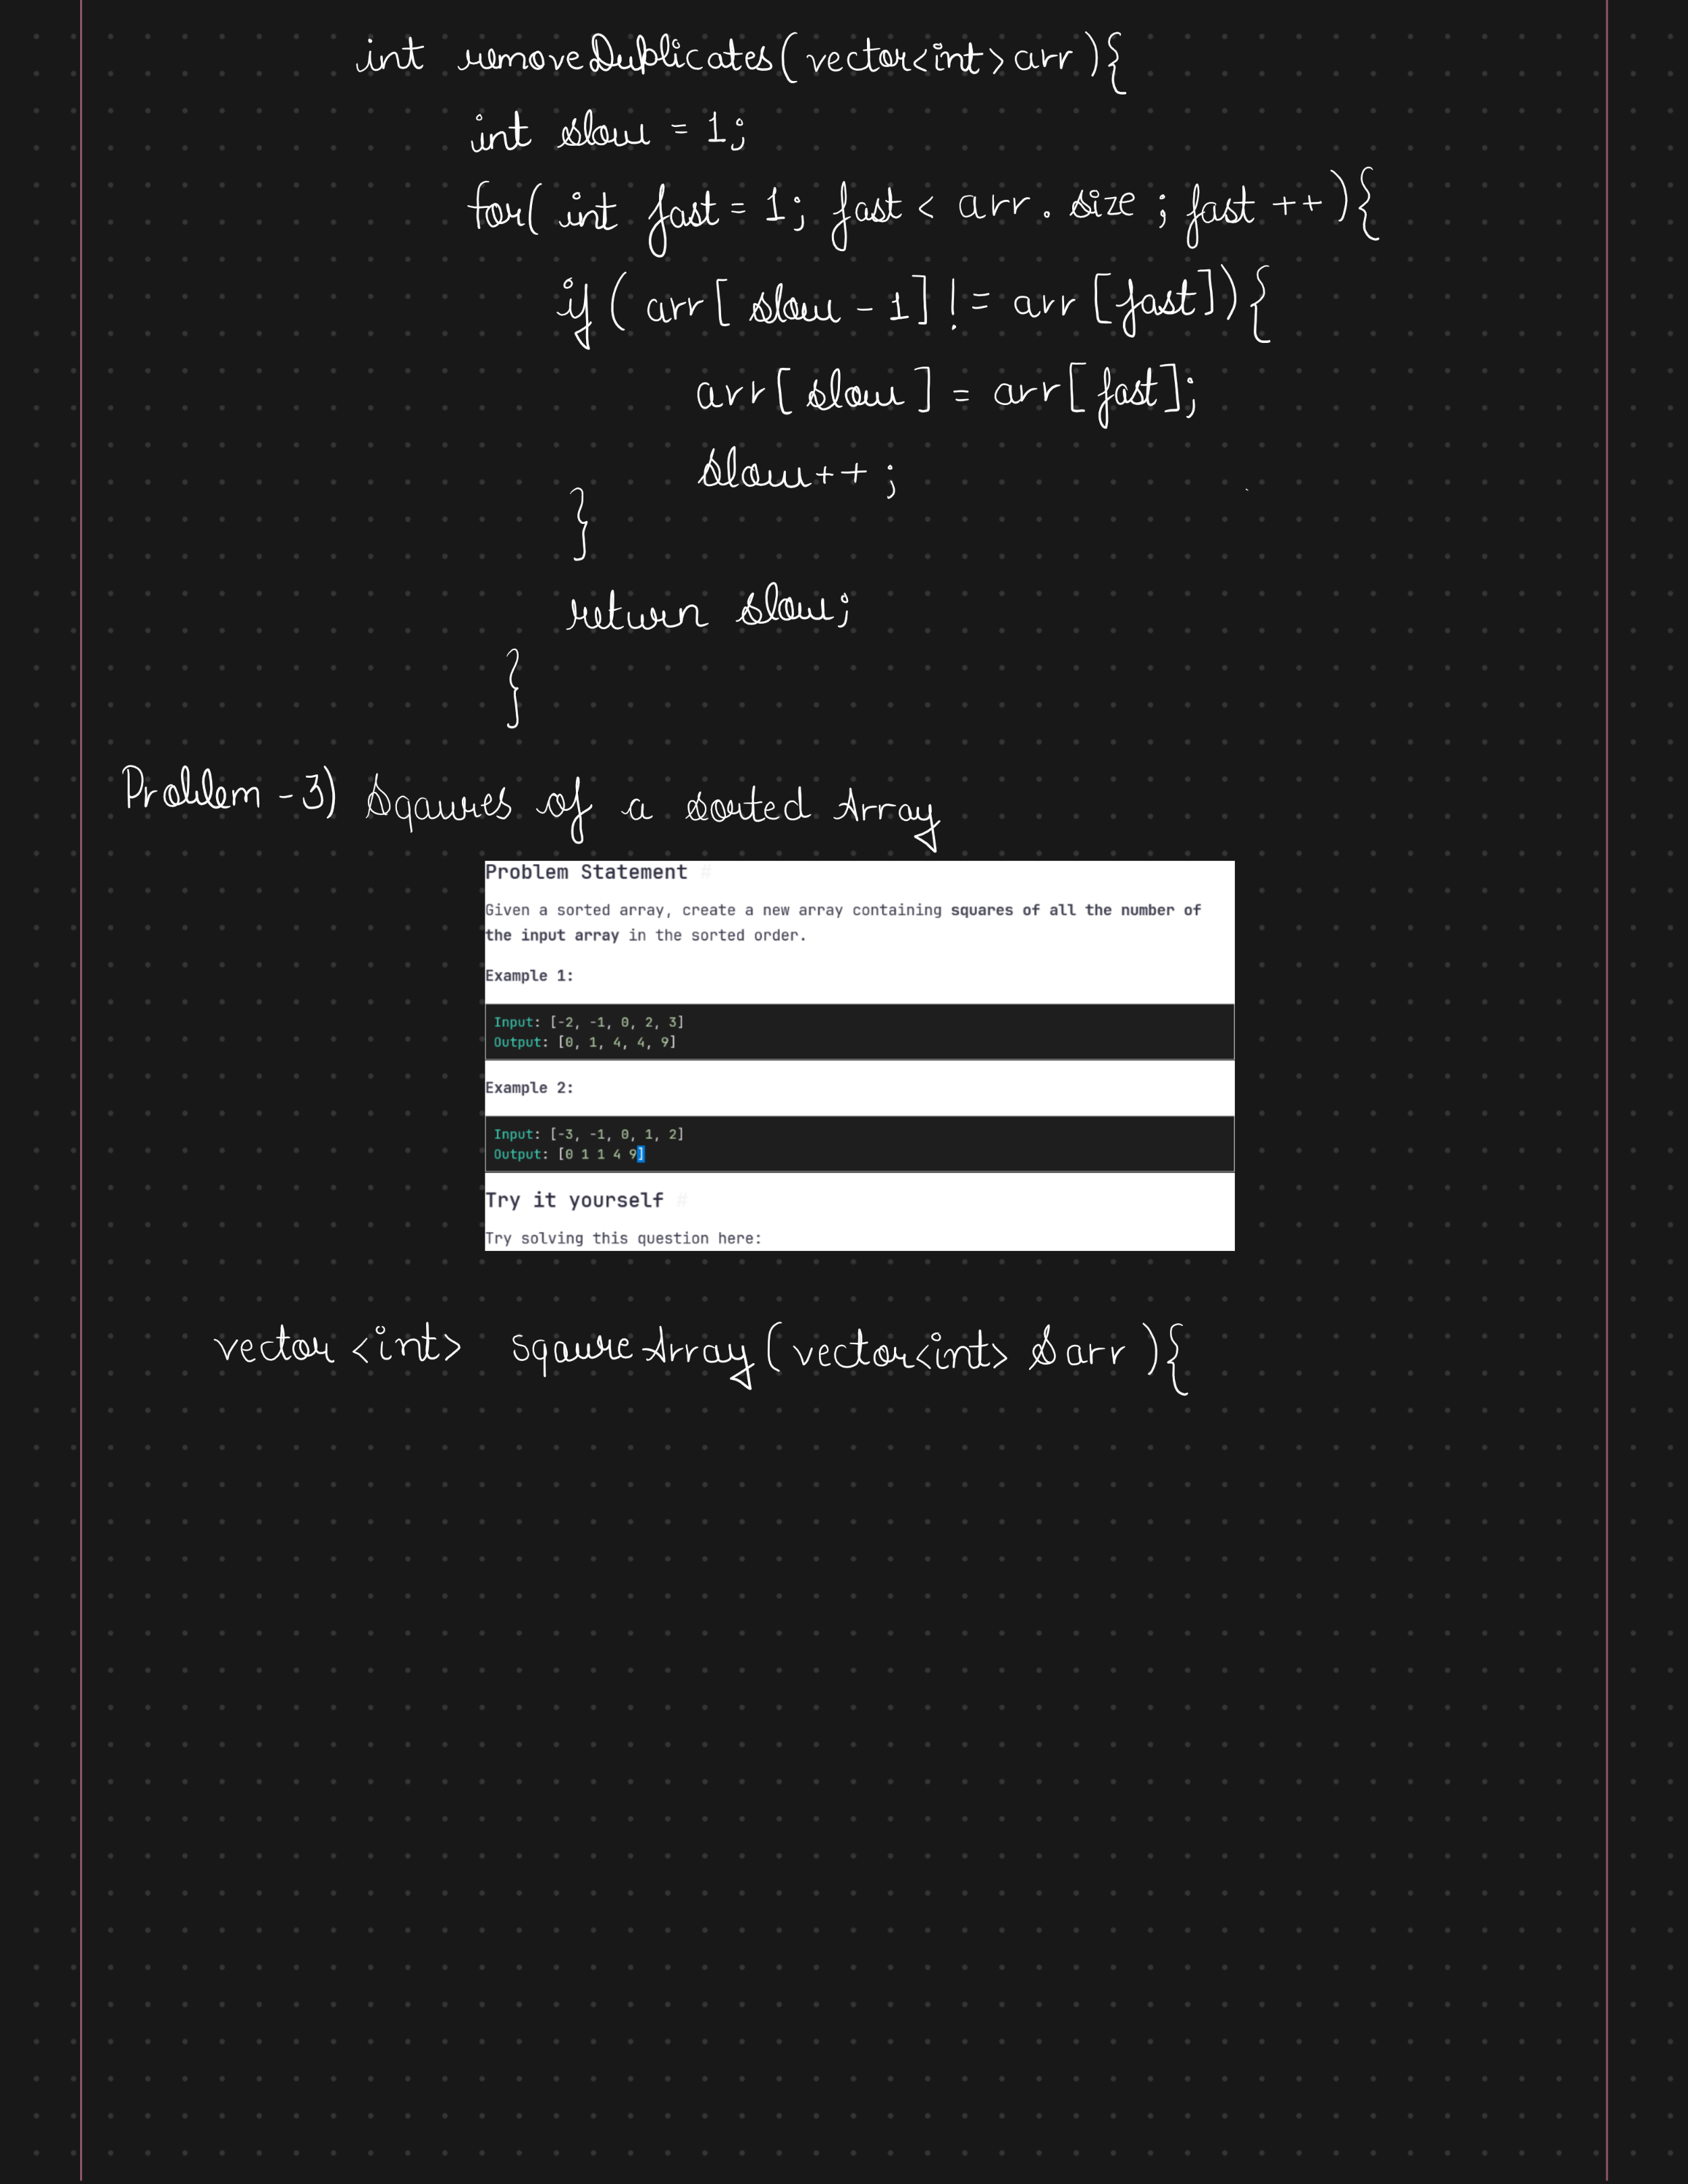 int removeDublicates(vector<int>arr){
int slow = 1;
for( int fast = 1; fast < arr. size ; fast ++){
if ( arr[ slow - 1] != arr [fast]){
arr[ slow ] = arr[ fast];
slow++ ;
}
return slow;
}
Problem -3) Sqaures of a sorted Array
Problem Statement #
Given a sorted array, create a new array containing squares of all the number of
the input array in the sorted order.
Example 1:
Input: [-2, -1, 0, 2, 3]
Output: [0, 1, 4, 4, 9]
Example 2:
Input: [-3, -1, 0, 1, 2]
Output: [0 1 1 4 9]
Try it yourself #
Try solving this question here:
vector <int> sqaureArray(vector<int> &arr ){